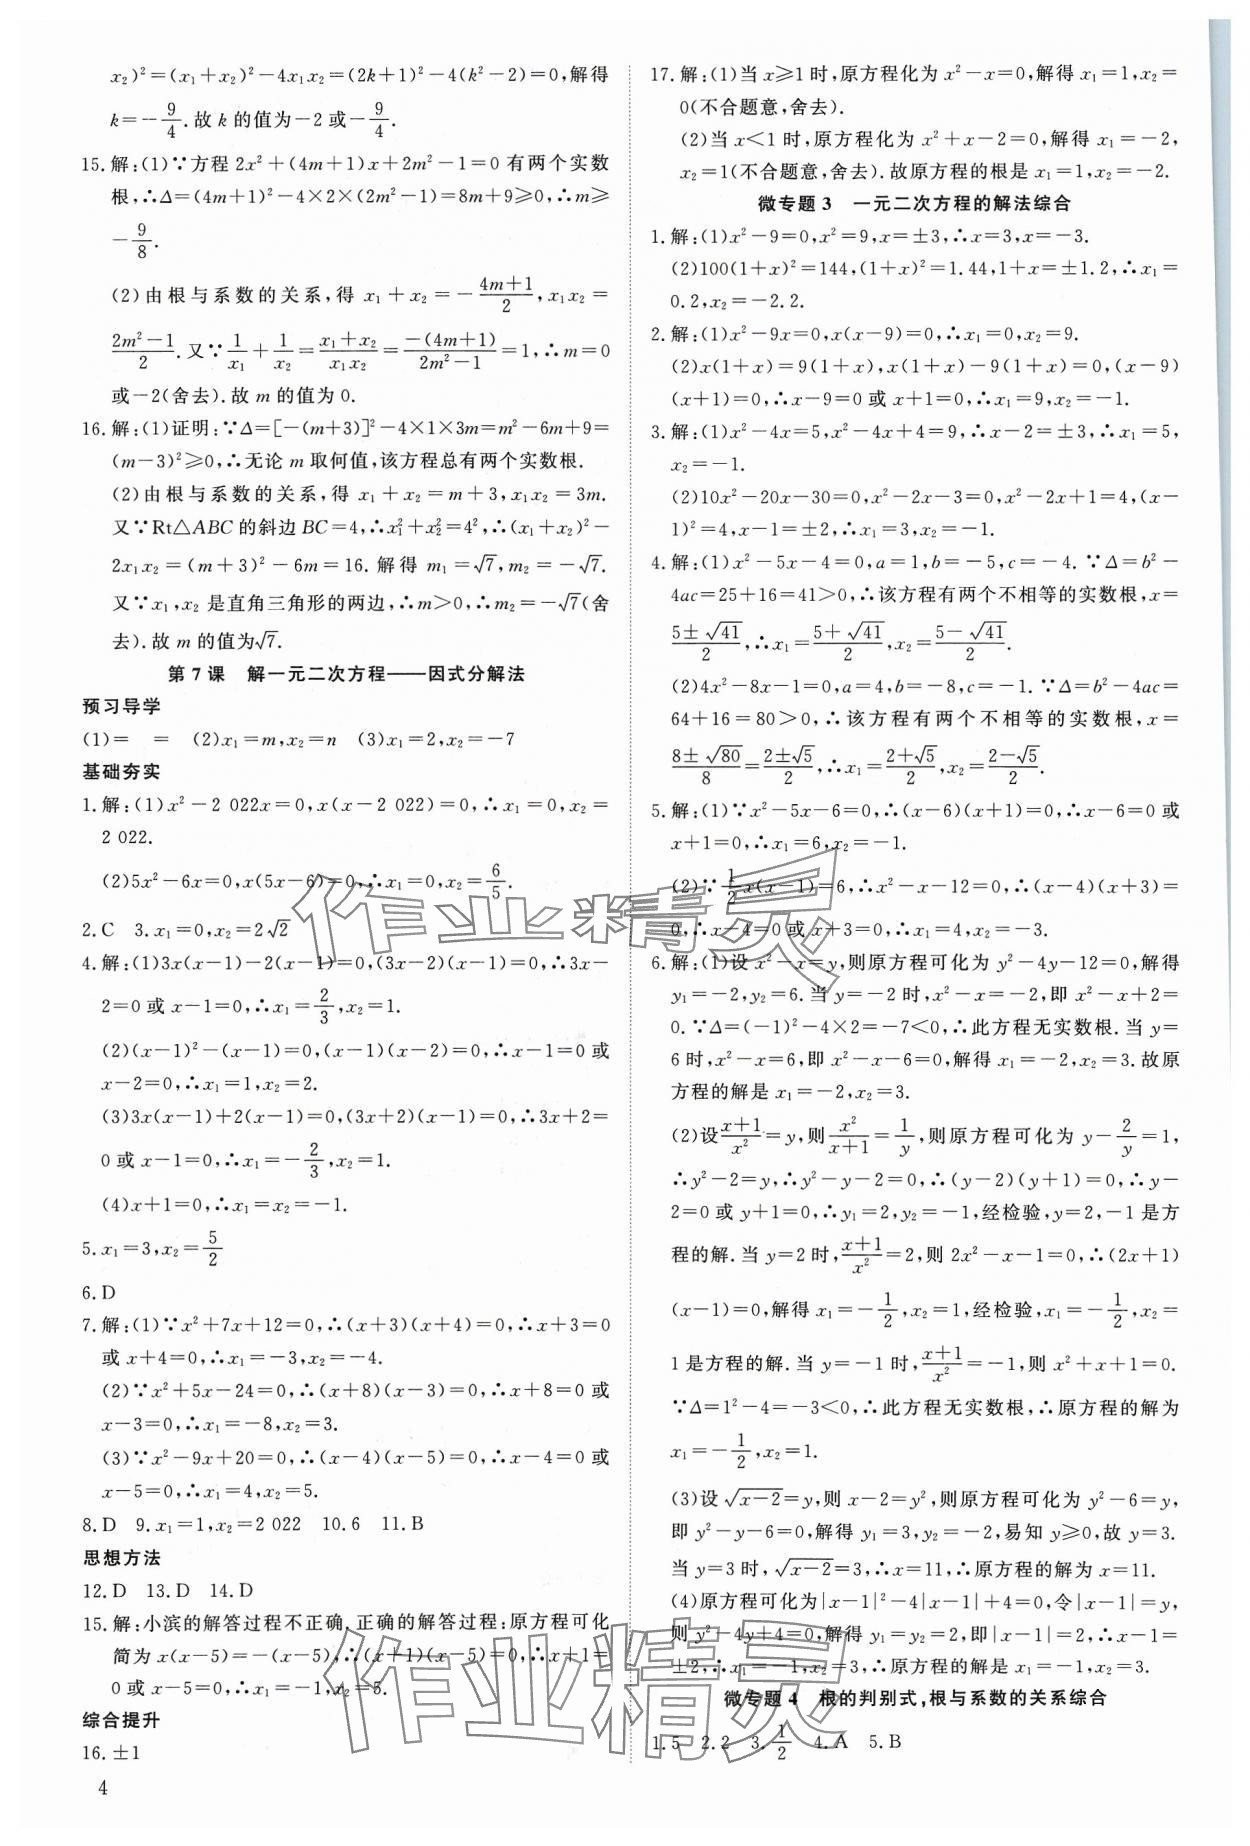 x₂)²=(x₁+x₂)²-4x₁x₂=(2k+1)²-4(k²-2)=0,解得
k=-9/4.故 k 的值为-2 或-9/4.
15.解:(1)∵方程 2x²+(4m+1)x+2m²-1=0 有两个实数
根,∴Δ=(4m+1)²-4×2×(2m²-1)=8m+9≥0,∴m≥
-9/8.
(2)由根与系数的关系,得 x₁+x₂=-(4m+1)/2,x₁x₂=
(2m²-1)/2.又∵1/x₁+1/x₂=(x₁+x₂)/(x₁x₂)=-(4m+1)/(2m²-1)=1,∴m=0
或-2(舍去).故 m 的值为 0.
16.解:(1)证明:∵Δ=[-(m+3)]²-4×1×3m=m²-6m+9=
(m-3)²≥0,∴无论 m 取何值,该方程总有两个实数根.
(2)由根与系数的关系,得 x₁+x₂=m+3,x₁x₂=3m.
又∵Rt△ABC 的斜边 BC=4,∴x₁²+x₂²=4²,∴(x₁+x₂)²-
2x₁x₂=(m+3)²-6m=16.解得 m₁=√7,m₂=-√7.
又∵x₁,x₂ 是直角三角形的两边,∴m>0,∴m₂=-√7(舍
去).故 m 的值为√7.
第 7 课 解一元二次方程——因式分解法
预习导学
(1)= = (2)x₁=m,x₂=n (3)x₁=2,x₂=-7
基础夯实
1.解:(1)x²-2 022x=0,x(x-2 022)=0,∴x₁=0,x₂=
2 022.
(2)5x²-6x=0,x(5x-6)=0,∴x₁=0,x₂=6/5.
2.C 3.x₁=0,x₂=2√2
4.解:(1)3x(x-1)-2(x-1)=0,(3x-2)(x-1)=0,∴3x-
2=0 或 x-1=0,∴x₁=2/3,x₂=1.
(2)(x-1)²-(x-1)=0,(x-1)(x-2)=0,∴x-1=0 或
x-2=0,∴x₁=1,x₂=2.
(3)3x(x-1)+2(x-1)=0,(3x+2)(x-1)=0,∴3x+2=
0 或 x-1=0,∴x₁=-2/3,x₂=1.
(4)x+1=0,∴x₁=x₂=-1.
5.x₁=3,x₂=5/2
6.D
7.解:(1)∵x²+7x+12=0,∴(x+3)(x+4)=0,∴x+3=0
或 x+4=0,∴x₁=-3,x₂=-4.
(2)∵x²+5x-24=0,∴(x+8)(x-3)=0,∴x+8=0 或
x-3=0,∴x₁=-8,x₂=3.
(3)∵x²-9x+20=0,∴(x-4)(x-5)=0,∴x-4=0 或
x-5=0,∴x₁=4,x₂=5.
8.D 9.x₁=1,x₂=2 022 10.6 11.B
思想方法
12.D 13.D 14.D
15.解:小滨的解答过程不正确.正确的解答过程:原方程可化
简为 x(x-5)=-(x-5),∴(x+1)(x-5)=0,∴x+1=
0 或 x-5=0,∴x₁=-1,x₂=5.
综合提升
16.±1
4
17.解:(1)当 x≥1 时,原方程化为 x²-x=0,解得 x₁=1,x₂=
0(不合题意,舍去).
(2)当 x<1 时,原方程化为 x²+x-2=0,解得 x₁=-2,
x₂=1(不合题意,舍去).故原方程的根是 x₁=1,x₂=-2.
微专题 3 一元二次方程的解法综合
1.解:(1)x²-9=0,x²=9,x=±3,∴x=3,x=-3.
(2)100(1+x)²=144,(1+x)²=1.44,1+x=±1.2,∴x₁=
0.2,x₂=-2.2.
2.解:(1)x²-9x=0,x(x-9)=0,∴x₁=0,x₂=9.
(2)x(1+x)=9(1+x),x(1+x)-9(1+x)=0,(x-9)
(x+1)=0,∴x-9=0 或 x+1=0,∴x₁=9,x₂=-1.
3.解:(1)x²-4x=5,x²-4x+4=9,∴x-2=±3,∴x₁=5,
x₂=-1.
(2)10x²-20x-30=0,x²-2x-3=0,x²-2x+1=4,(x-
1)²=4,x-1=±2,∴x₁=3,x₂=-1.
4.解:(1)x²-5x-4=0,a=1,b=-5,c=-4.∵Δ=b²-
4ac=25+16=41>0,∴该方程有两个不相等的实数根,x=
(5±√41)/2,∴x₁=(5+√41)/2,x₂=(5-√41)/2.
(2)4x²-8x-1=0,a=4,b=-8,c=-1.∵Δ=b²-4ac=
64+16=80>0,∴该方程有两个不相等的实数根,x=
(8±√80)/8=(2±√5)/2,∴x₁=(2+√5)/2,x₂=(2-√5)/2.
5.解:(1)∵x²-5x-6=0,∴(x-6)(x+1)=0,∴x-6=0 或
x+1=0,∴x₁=6,x₂=-1.
(2)∵1/2x(x-1)=6,∴x²-x-12=0,∴(x-4)(x+3)=
0,∴x-4=0 或 x+3=0,∴x₁=4,x₂=-3.
6.解:(1)设 x²-x=y,则原方程可化为 y²-4y-12=0,解得
y₁=-2,y₂=6.当 y=-2 时,x²-x=-2,即 x²-x+2=
0.∵Δ=(-1)²-4×2=-7<0,∴此方程无实数根.当 y=
6 时,x²-x=6,即 x²-x-6=0,解得 x₁=-2,x₂=3.故原
方程的解是 x₁=-2,x₂=3.
(2)设(x+1)/x²=y,则x²/(x+1)=1/y,则原方程可化为 y-2/y=1,
∴y²-2=y,∴y²-y-2=0,∴(y-2)(y+1)=0,∴y-
2=0 或 y+1=0,∴y₁=2,y₂=-1,经检验,y=2,-1 是方
程的解.当 y=2 时,(x+1)/x²=2,则 2x²-x-1=0,∴(2x+1)
(x-1)=0,解得 x₁=-1/2,x₂=1,经检验,x₁=-1/2,x₂=
1 是方程的解.当 y=-1 时,(x+1)/x²=-1,则 x²+x+1=0.
∵Δ=1²-4=-3<0,∴此方程无实数根,∴原方程的解为
x₁=-1/2,x₂=1.
(3)设 √(x-2)=y,则 x-2=y²,则原方程可化为 y²-6=y,
即 y²-y-6=0,解得 y₁=3,y₂=-2,易知 y≥0,故 y=3.
当 y=3 时,√(x-2)=3,∴x=11,∴原方程的解为 x=11.
(4)原方程可化为|x-1|²-4|x-1|+4=0,令|x-1|=y,
则 y²-4y+4=0,解得 y₁=y₂=2,即|x-1|=2,∴x-1=
±2,∴x₁=-1,x₂=3,∴原方程的解是 x₁=-1,x₂=3.
微专题 4 根的判别式,根与系数的关系综合
1.5 2.2 3.1/2 4.A 5.B
作业精灵
作业精灵